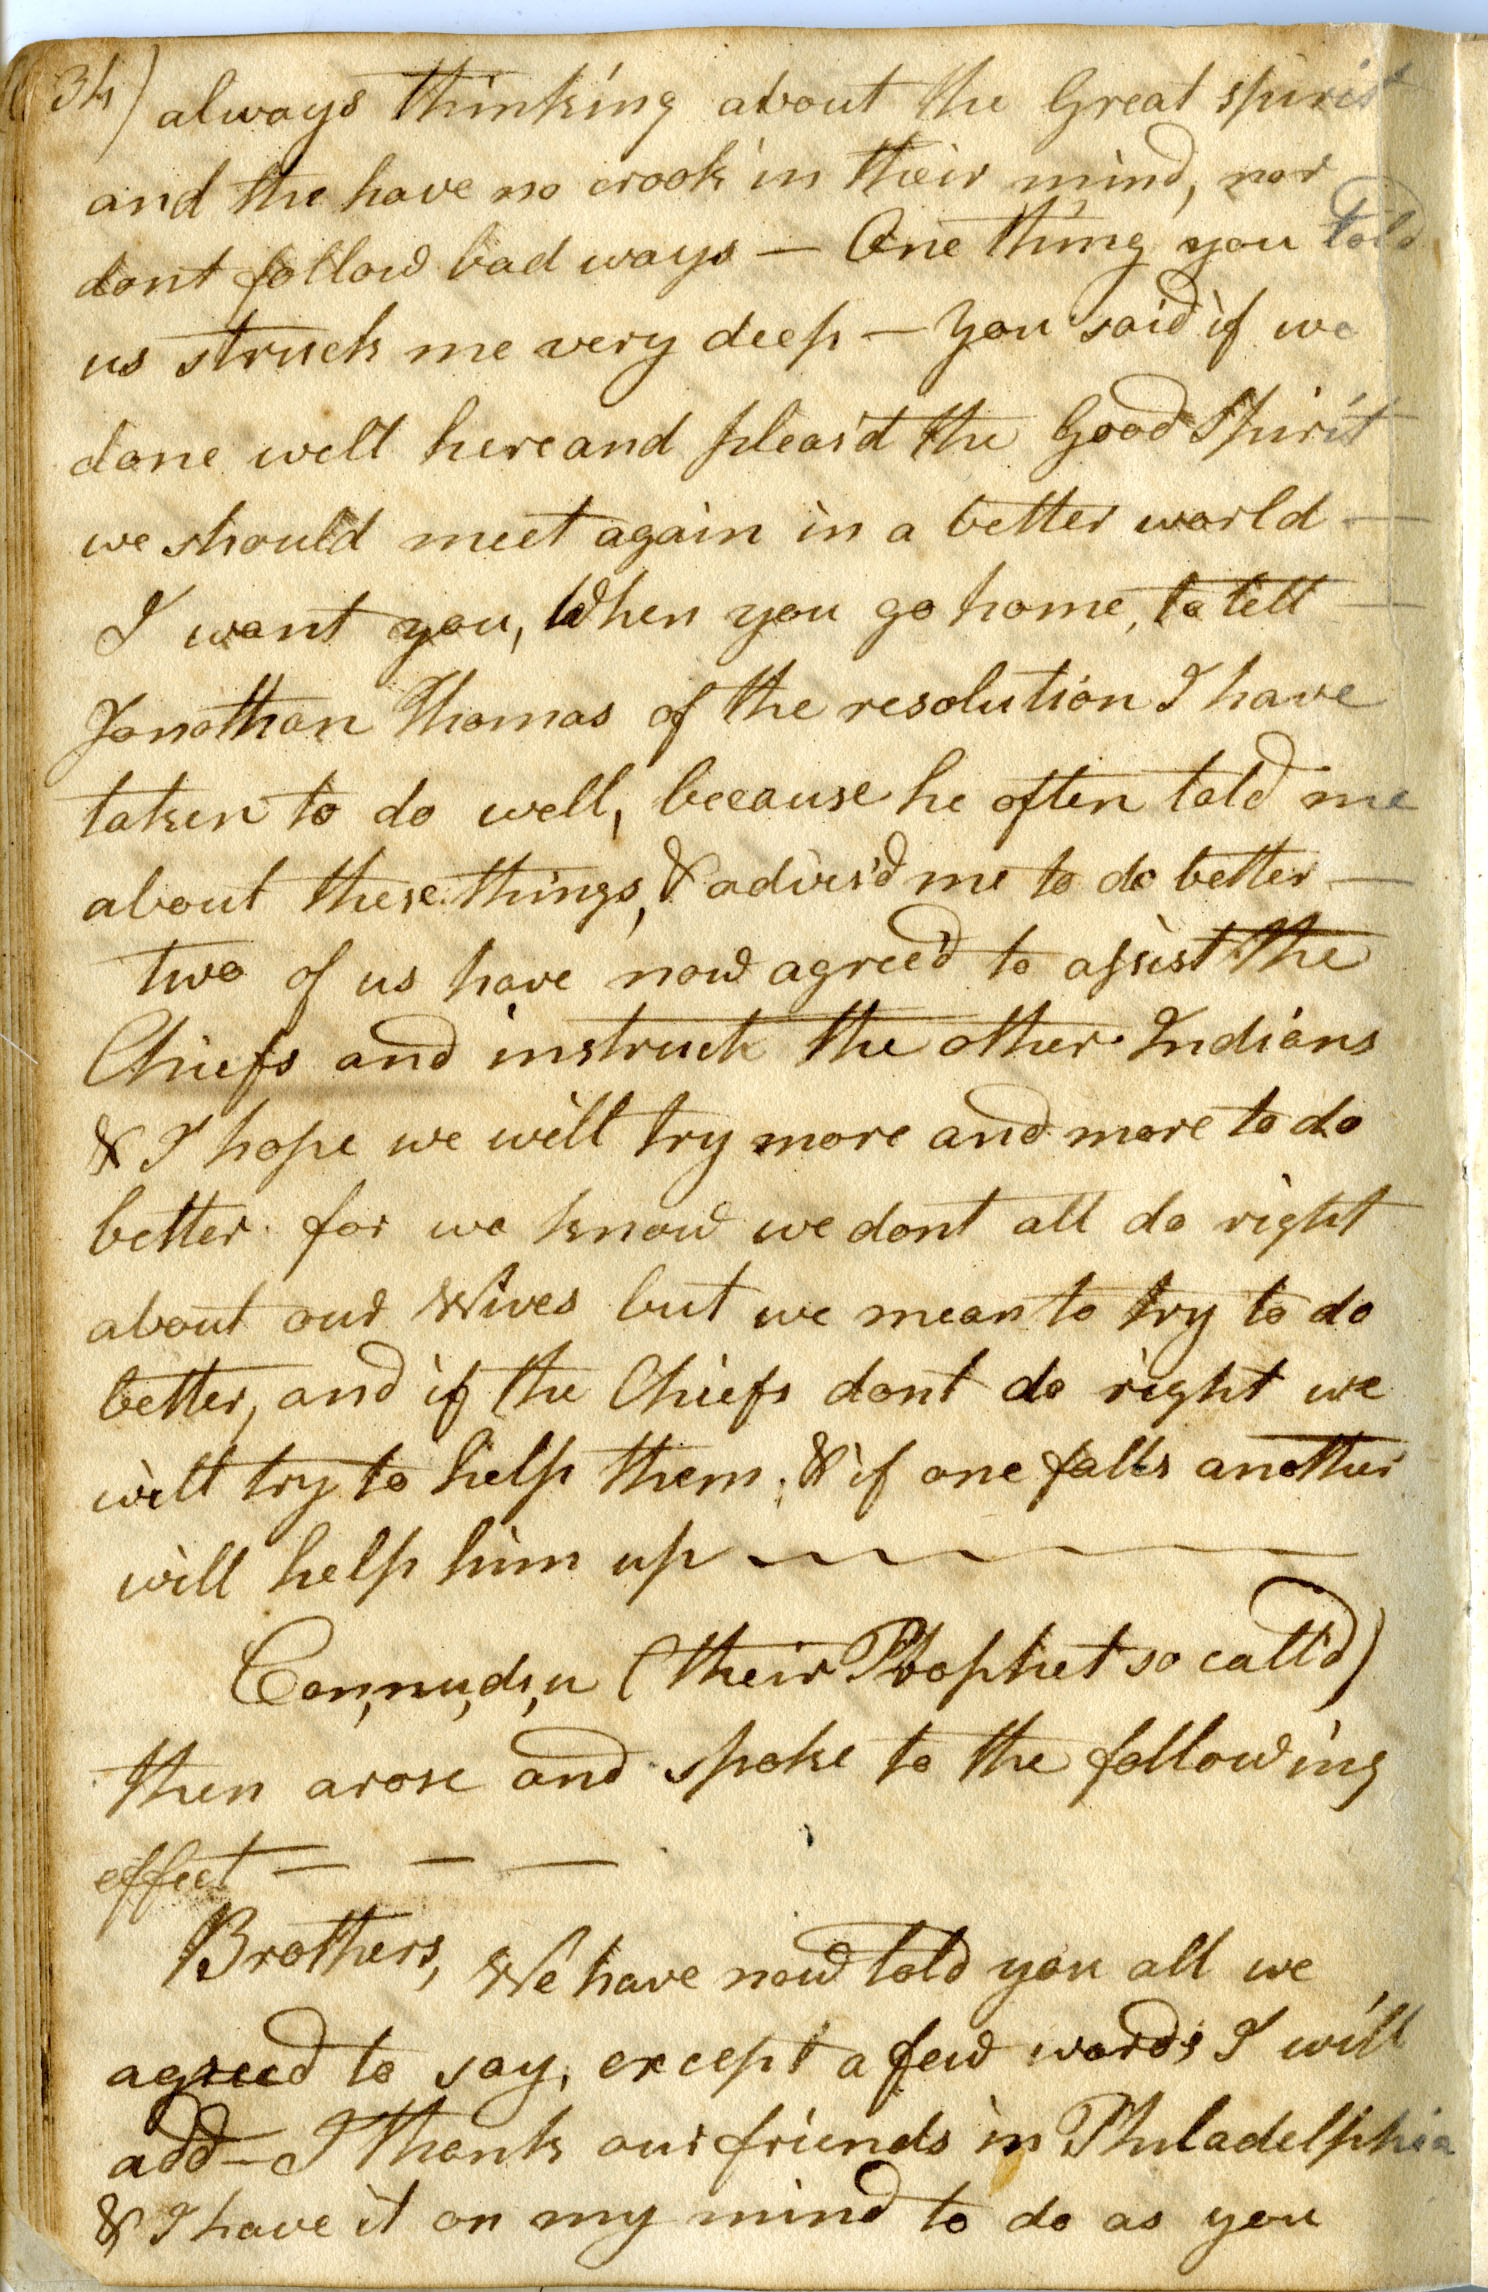 (34) always thinking about the Great spirit
and the have no crook in their mind, nor
dont follow bad ways — One thing you told
us struck me very deep — You said if we
done well here and pleas'd the Good Spirit
we should meet again in a better world —
I want you, When you go home, to tell —
Jonathan Thomas of the resolution I have
taken to do well, because he often told me
about these things, & advis'd me to do better —
two of us have now agree'd to assist the
Chiefs and instruct the other Indians
& I hope we will try more and more to do
better for we know we dont all do right
about our Wives but we mean to try to do
better, and if the Chiefs dont do right we
will try to help them, & if one falls another
will help him up
Con,nu,di,u (their Prophet so call'd)
then arose and spoke to the following
effect — — —
Brothers, We have now told you all we
agreed to say, except a few words I will
add — I thank our friends in Philadelphia
& I have it on my mind to do as you